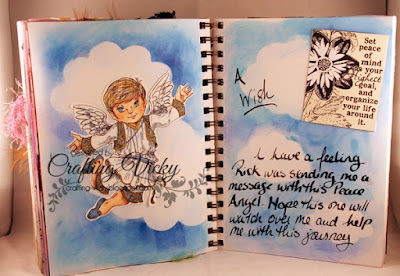 Crafting Vicky
crafting-vicky.blogspot.com
A
Wish
Set
peace
of
mind
as your
highest
goal,
and
organize
your life
around
it.
I have a feeling
Rick was sending me a
message with this Peace
Angel. Hope this one will
watch over me and help
me with this journey